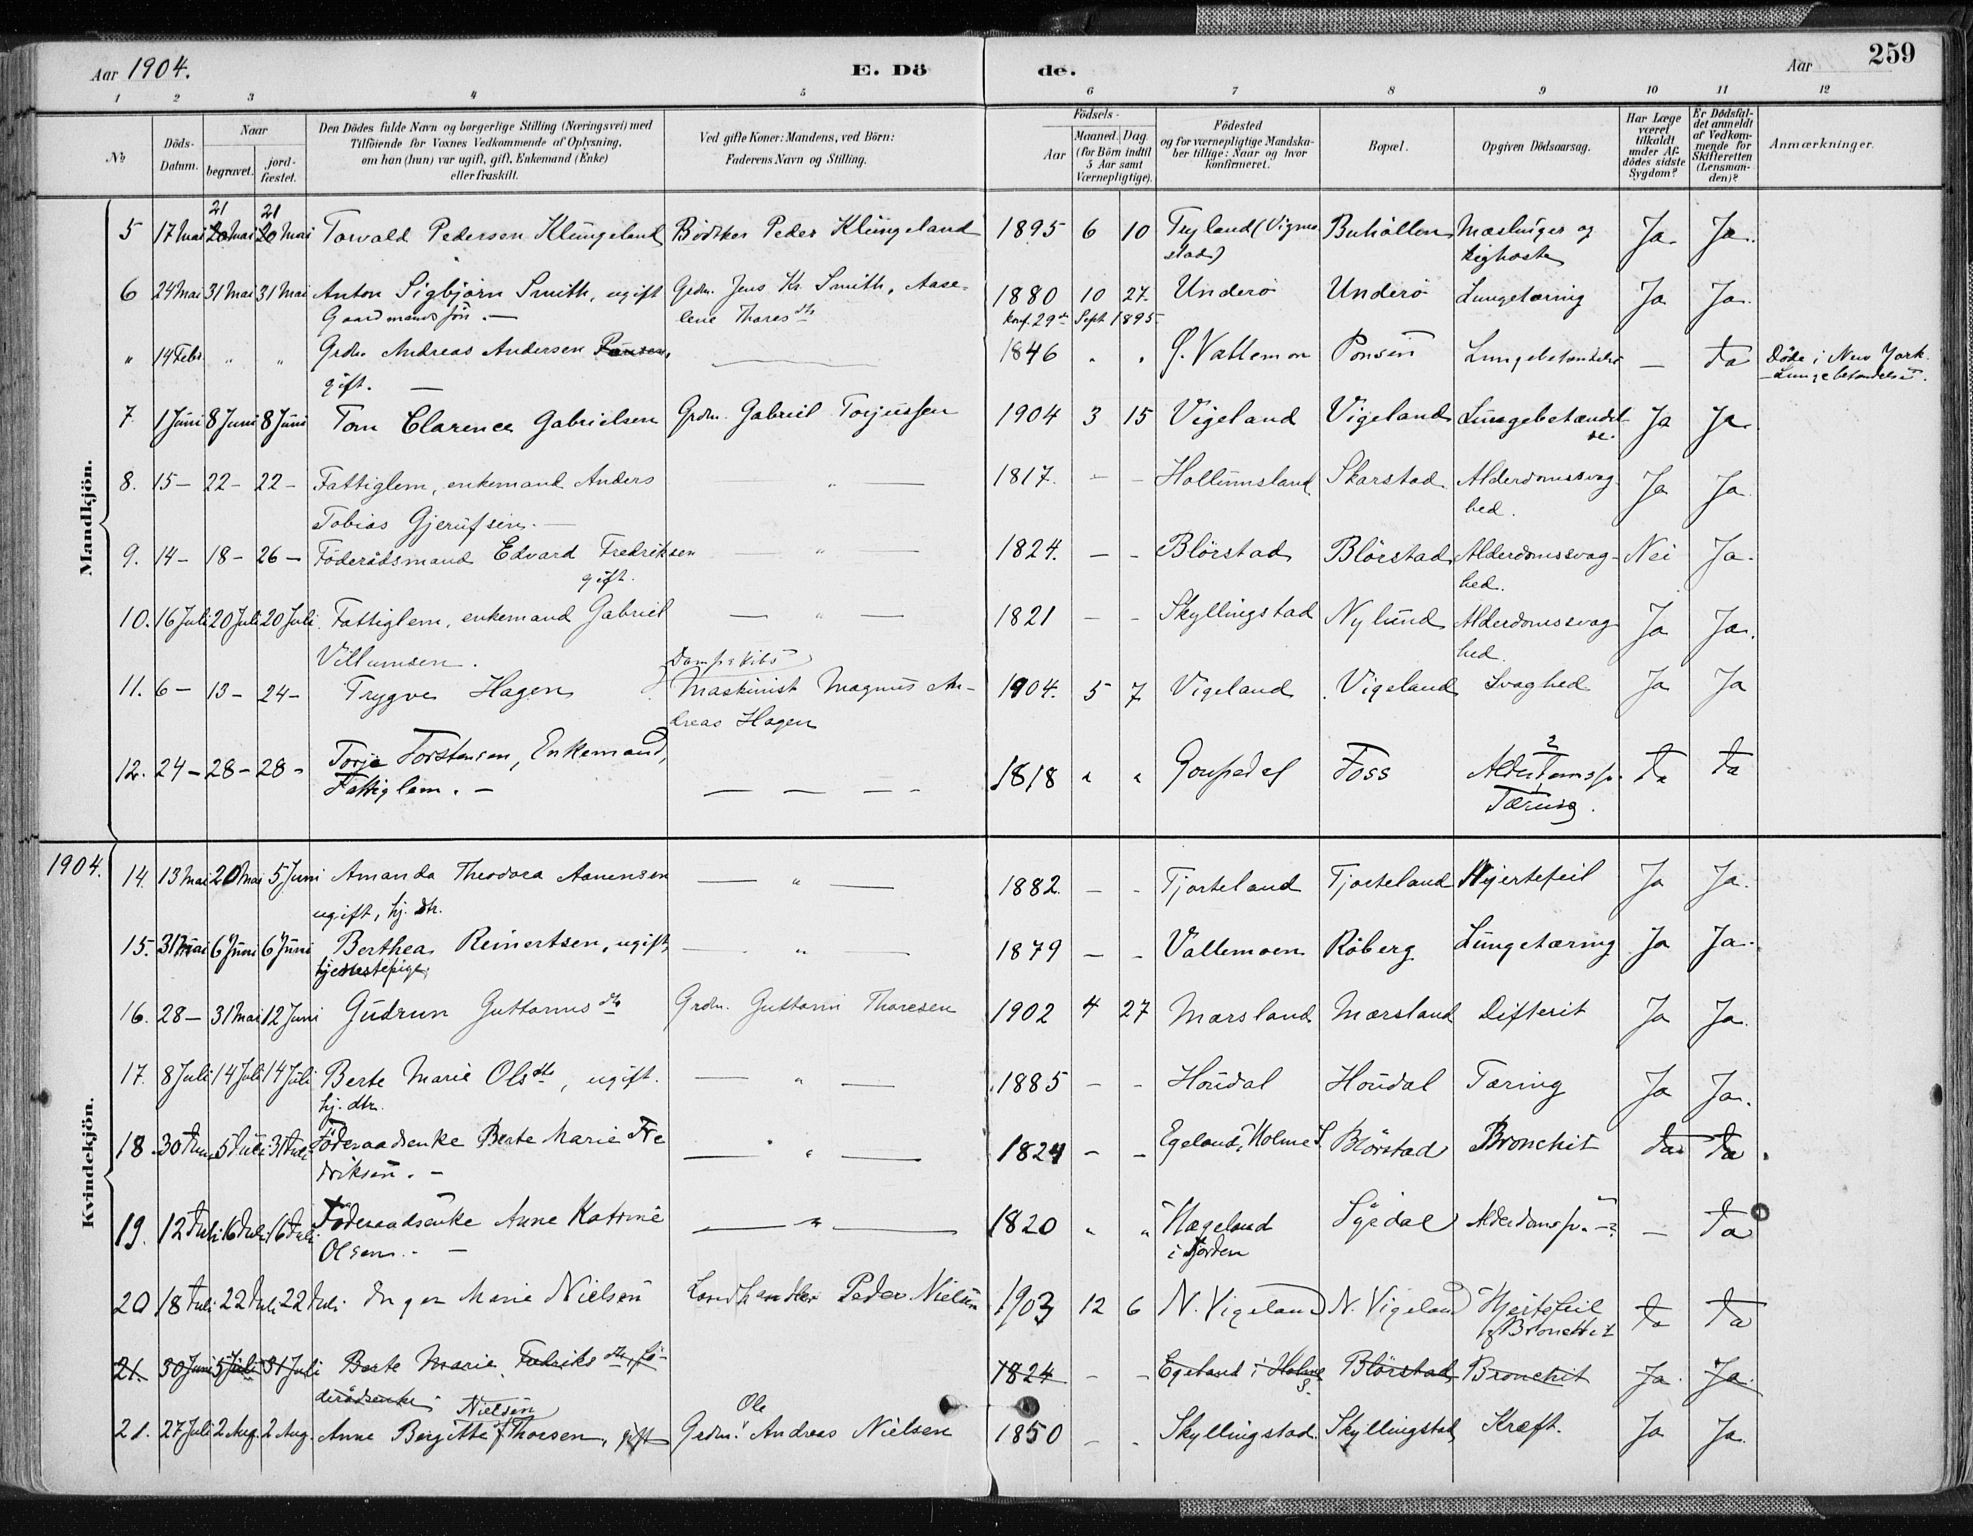 Aar 1904.
E. Döde.
Aar
259
1 2 3 4 5 6 7 8 9 10 11 12
No
Döds-Datum.
Naar
begravet.
jord-fæstet.
Den Dödes fulde Navn og borgerlige Stilling (Næringsvei) med
Tilföiende for Voxnes Vedkommende af Oplysning,
om han (hun) var ugift, gift, Enkemand (Enke)
eller fraskilt.
Ved gifte Koner: Mandens, ved Börn:
Faderens Navn og Stilling.
Födsels-
Aar
Maaned. Dag.
(for Börn indtil
5 Aar samt
Værnepligtige).
Födested
og for værnepligtige Mandska-
ber tillige: Naar og hvor
konfirmeret.
Bopæl.
Opgiven Dödsaarsag.
Har Læge
været
tilkaldt
under Af-
dödes sidste
Sygdom?
Er Dödsfal-
det anmeldt
af Vedkom-
mende for
Skifteretten
(Lensman-
den)?
Anmærkninger.
Mandkjön.
21 21
5 17 Mai 20 Mai 20 Mai Torvald Pedersen Klungeland Bödker Peder Klungeland 1895 6 10 Tryland (Vigmo Buhöllen Mæslinger og Ja Ja.
stad) Kighoste
6 24 Mai 31 Mai 31 Mai Anton Sigbjørn Smith, ugift Grdm. Jens Kr. Smith, Aase- 1880 10 27. Underö Underö Lungetæring Ja Ja.
Gaardmands søn. — lene Thoresdtr konf. 29de Sept 1895.
" 14 Febr. " " Grdm. Andreas Andersen Ponsen, 1846 " " Ø. Vattemon Ponsen Lungebetændelse — Ja Døde i New York
gift. — Lungebetændelse.
7. 1 Juni 8 Juni 8 Juni Tom Clarence Gabrielsen Grdm. Gabriel Torjussen 1904 3 15 Vigeland Vigeland Lungebetændel- Ja Ja.
se.
8. 15 — 22 — 22 — Fattiglem, enkemand Anders — " — 1817. — — Hollumsland Skarstad Alderdomssvag Ja Ja
Tobias Gjerufsen. — hed.
9. 14 — 18 — 26 — Föderådsmand Edvard Fredriksen — " — 1824. — — Blörstad Blörstad Alderdomssvag- Nei Ja.
gift. hed.
10. 16 Juli 20 Juli 20 Juli Fattiglem, enkemand Gabriel — " — 1821 — — Skyllingstad Nylund Alderdomssvag Ja Ja.
Villumsen. hed.
Dampskibs
11. 6 — 13 — 24 — Trygve Hagen Maskinist Magnus An- 1904. 5 7 Vigeland Vigeland Svaghed Ja Ja
dreas Hagen
12. 24 — 28 — 28 — Torje Torstensen, Enkemand, — — — — 1818 " " Foss Ja Ja
Fattiglem. — Tæring.
Kvindekjön.
1904. 14. 13 Mai 20 Mai 5 Juni Amanda Theodora Aanensen — " — 1882 — — Tjorteland Tjorteland Hjertefeil Ja Ja.
ugift, hj. dtr.
15. 31 Mai 6 Juni 6 Juni Berthea Reinertsen, ugift, — " — 1879 — — Vattemoen Röberg Lungetæring Ja Ja.
tjenestepige.
16. 28 — 31 Mai 12 Juni Gudrun Guttormsdtr Grdm. Guttorm Thoresen 1902 4 27 Marsland Marsland Difterit Ja Ja.
17. 8 Juli 14 Juli 14 Juli Berte Marie Olsdtr, ugift. — " — 1885 — — Houdal Houdal Tæring Ja Ja.
hj. dtr.
18. 30 Juni 5 Juli 31 Juli Föderaadsenke Berte Marie Fre — " — 1824 — — Egeland i Holme S. Blörstad Bronchit Ja Ja.
driksen. —
19. 12 Juli 16 Juli 16 Juli Föderaadsenke Anne Katrine — " — 1820 " " Hageland Alderdomssv. — ? — Ja
Olsen. — i
20 18 Juli 22 Juli 22 Juli. Inger Marie Nielsen Landhandler Peder Nielsen 1903 12 6 N. Vigeland N. Vigeland Hjertefeil Ja Ja
Bronchit
21. 30 Juni 5 Juli 31 Juli Berte Marie Fredriksdtr, fö- 1824 — — Egeland i Holme Blörstad Bronchit Ja. Ja.
derådsenke S.
Nielsen Ole
21. 27 Juli 2 Aug. 2 Aug. Anne Bergitte Thorsen, gift Grdm. Andreas Nielsen 1850 — — Skyllingstad. Skyllingstad Kræft. Ja Ja.